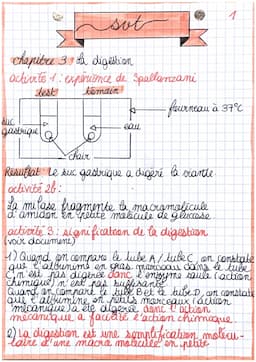 1
svt
chapitre 3 : la digestion
activité 1 : expérience de Spallanzani
test témoin
fourneau à 37°C
suc
gastrique
eau
chair
Resultat : le suc gastrique a digéré la viande
activité 2b :
La milase fragmente la macromolécule
d'amidon en petite molécule de glucose
activité 3 : signification de la digestion
(voir document)
1) Quand on compare le tube A / tube C, on constate
que l'albumine en gros morceaux dans le tube
C n'est pas digérée donc l'enzyme seule (action
chimique) n'est pas suffisante.
Quand on compare le tube B et le tube D, on constate
que l'albumine en petits morceaux (action
mécanique) a été digérée donc l'action
mécanique a facilité l'action chimique.
2) La digestion est une simplification molécu-
laire d'une macro molécule en petite